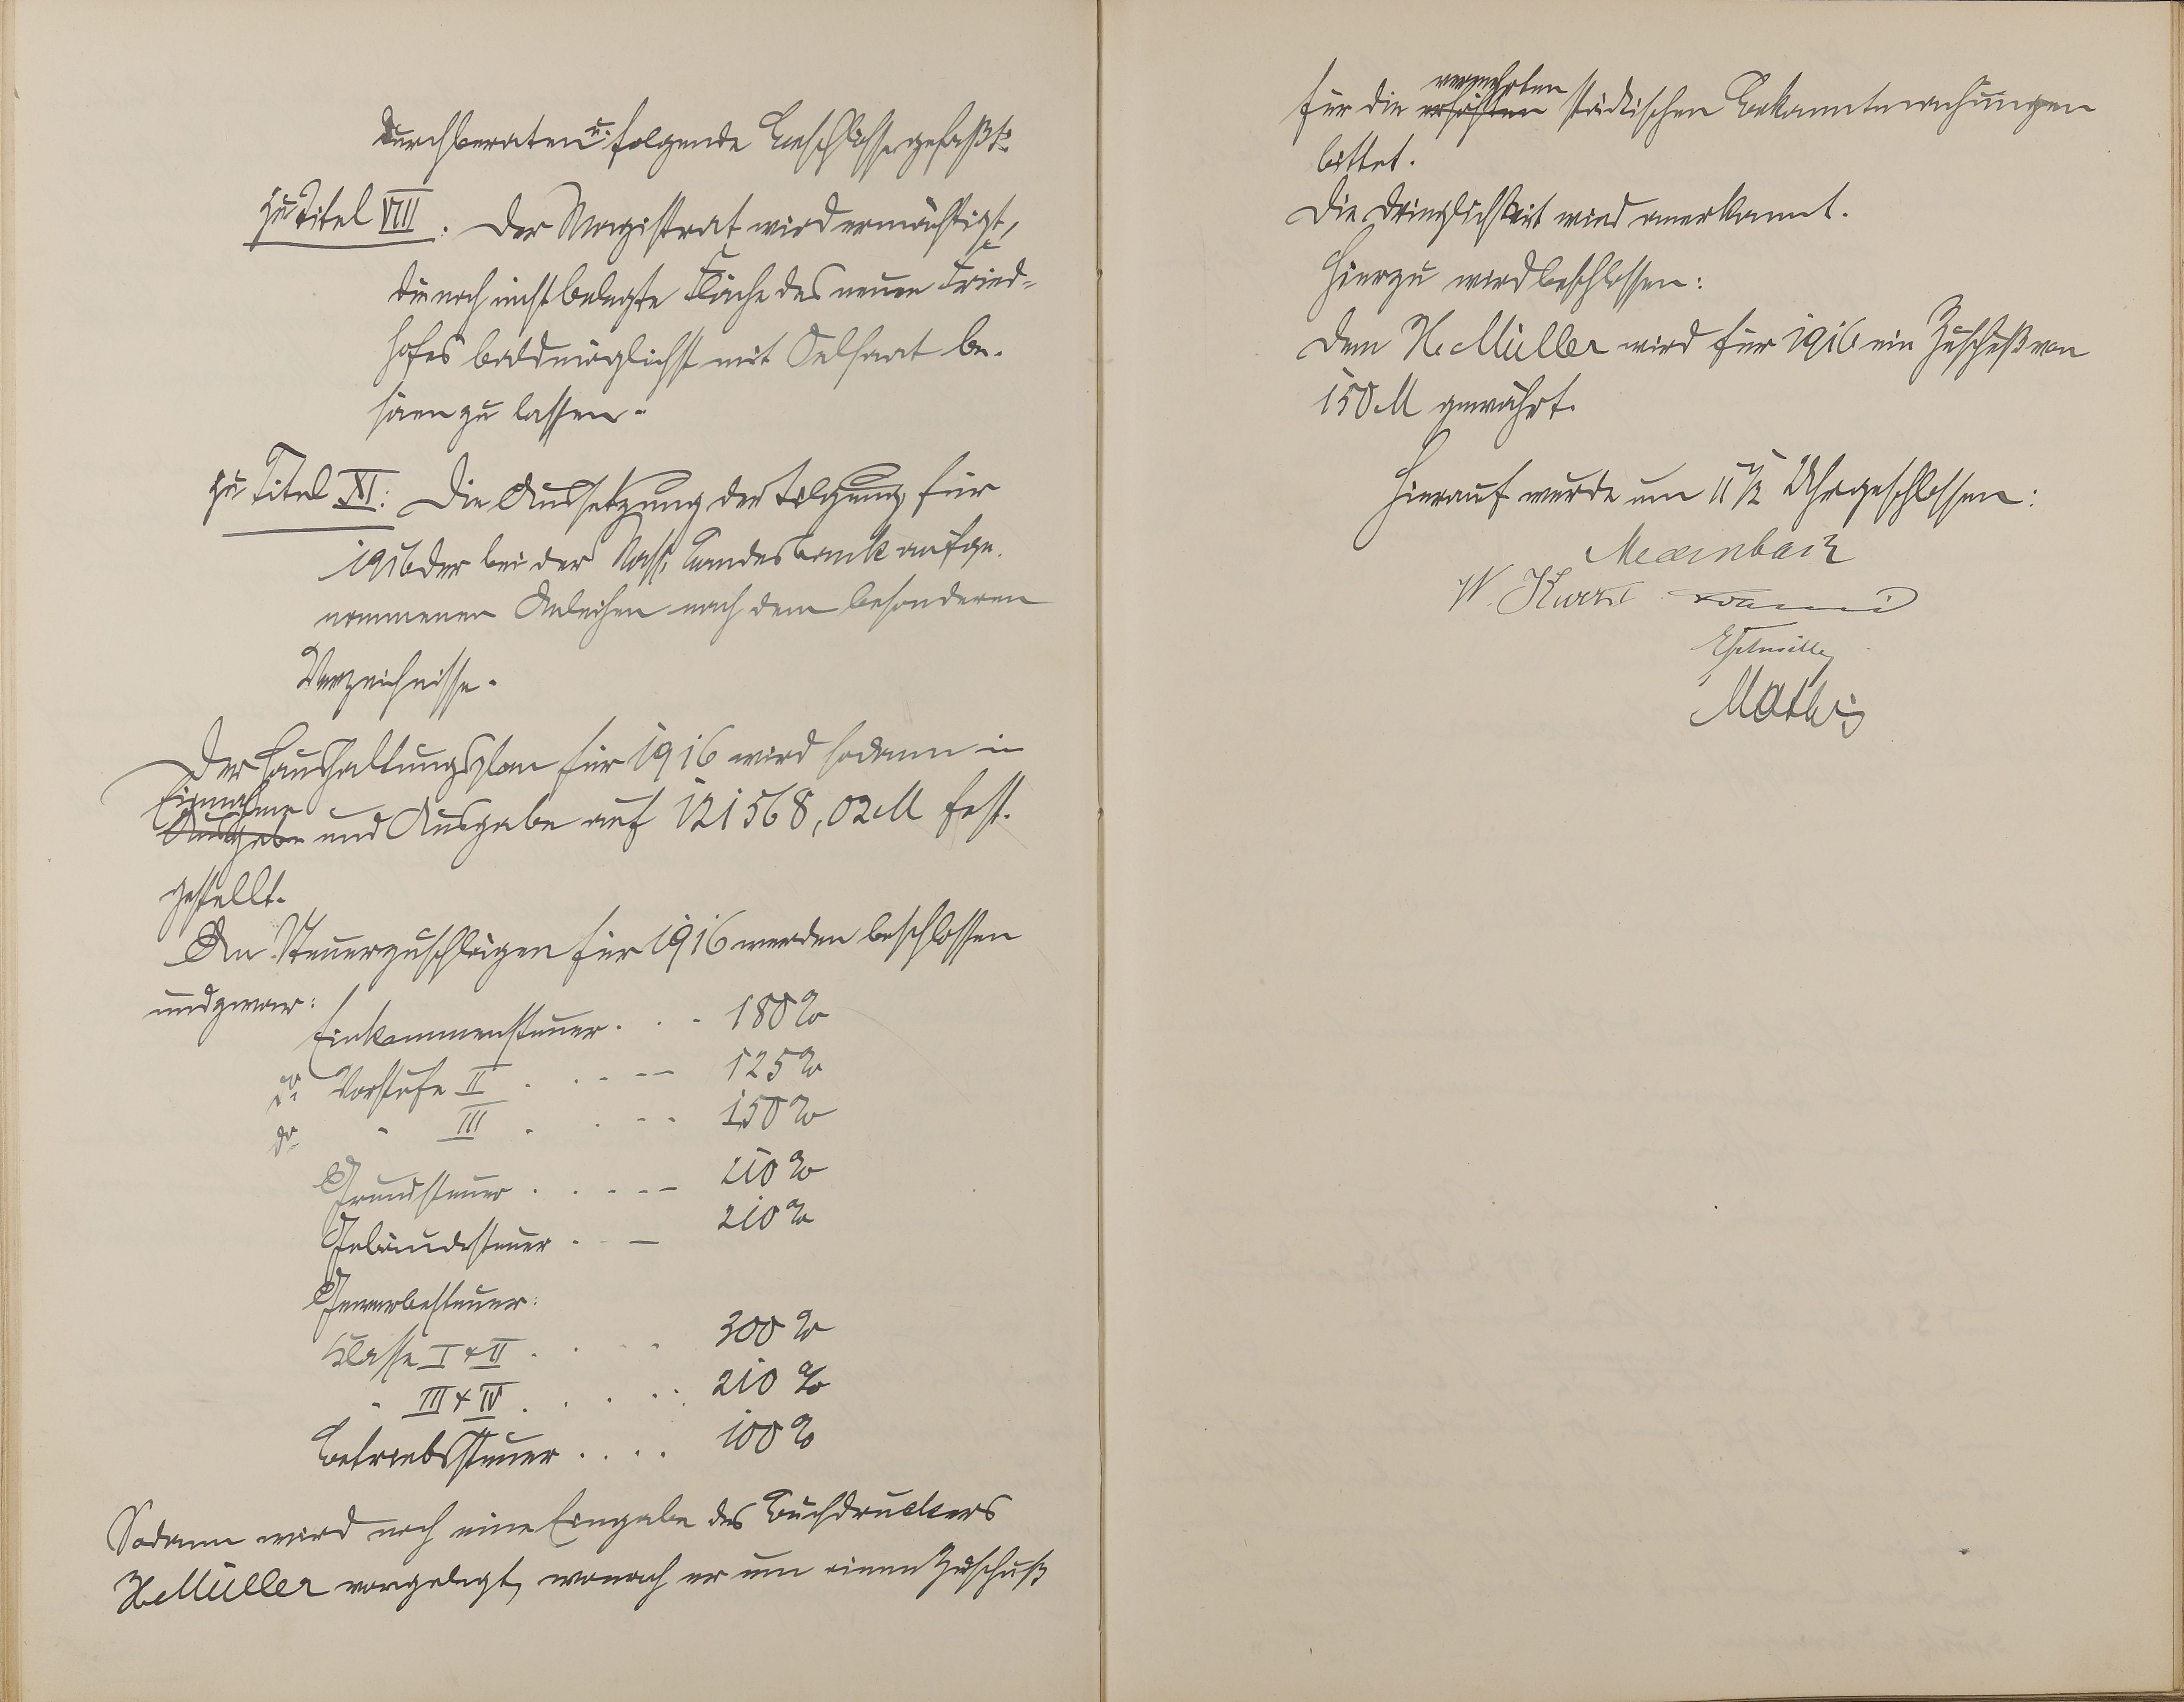 durchberaten u. folgende Beschlüsse gefaßt:
zu Titel VIII: Der Magistrat wird ermächtigt,
die noch nicht belegte Fläche des neuen Fried-
hofes baldmöglichst mit Oelsaat be-
säen zu lassen.
zu Titel XI: Die Aussetzung der Tilgung für
1916 der bei der Nass. Landesbank aufge-
nommenen Anleihen nach dem besonderen
Verzeichnisse.
Der Haushaltungsplan für 1916 wird sodann in
Einnahme
Ausgabe und Ausgabe auf 121568,02 M fest-
gestellt.
An Steuerzuschlägen für 1916 werden beschlossen
und zwar:
Einkommensteuer . . . 180%
do. Vorstufe II . . . . . 125%
do. " III . . . . 150%
Grundsteuer . . . . . 210%
Gebäudesteuer . — 210%
Gewerbesteuer:
Klasse I & II . . . 300%
" III & IV . . . . . 210%
Betriebssteuer . . . . 100%
Sodann wird noch eine Eingabe des Buchdruckers
H. Müller vorgelegt, wonach er um einen Zuschuß
vermehrten
für die erhöhten städtischen Bekanntmachungen
bittet.
Die Dringlichkeit wird anerkannt.
Hierzu wird beschlossen:
Dem H. Müller wird für 1916 ein Zuschuß von
150 M gewährt.
Hierauf wurde um 11 1/2 Uhr geschlossen:
W. Kurz
Mathis